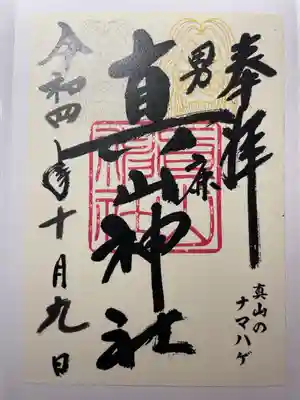 奉拝
真山の
ナマハゲ
男鹿
真山神社
令和四年十月九日